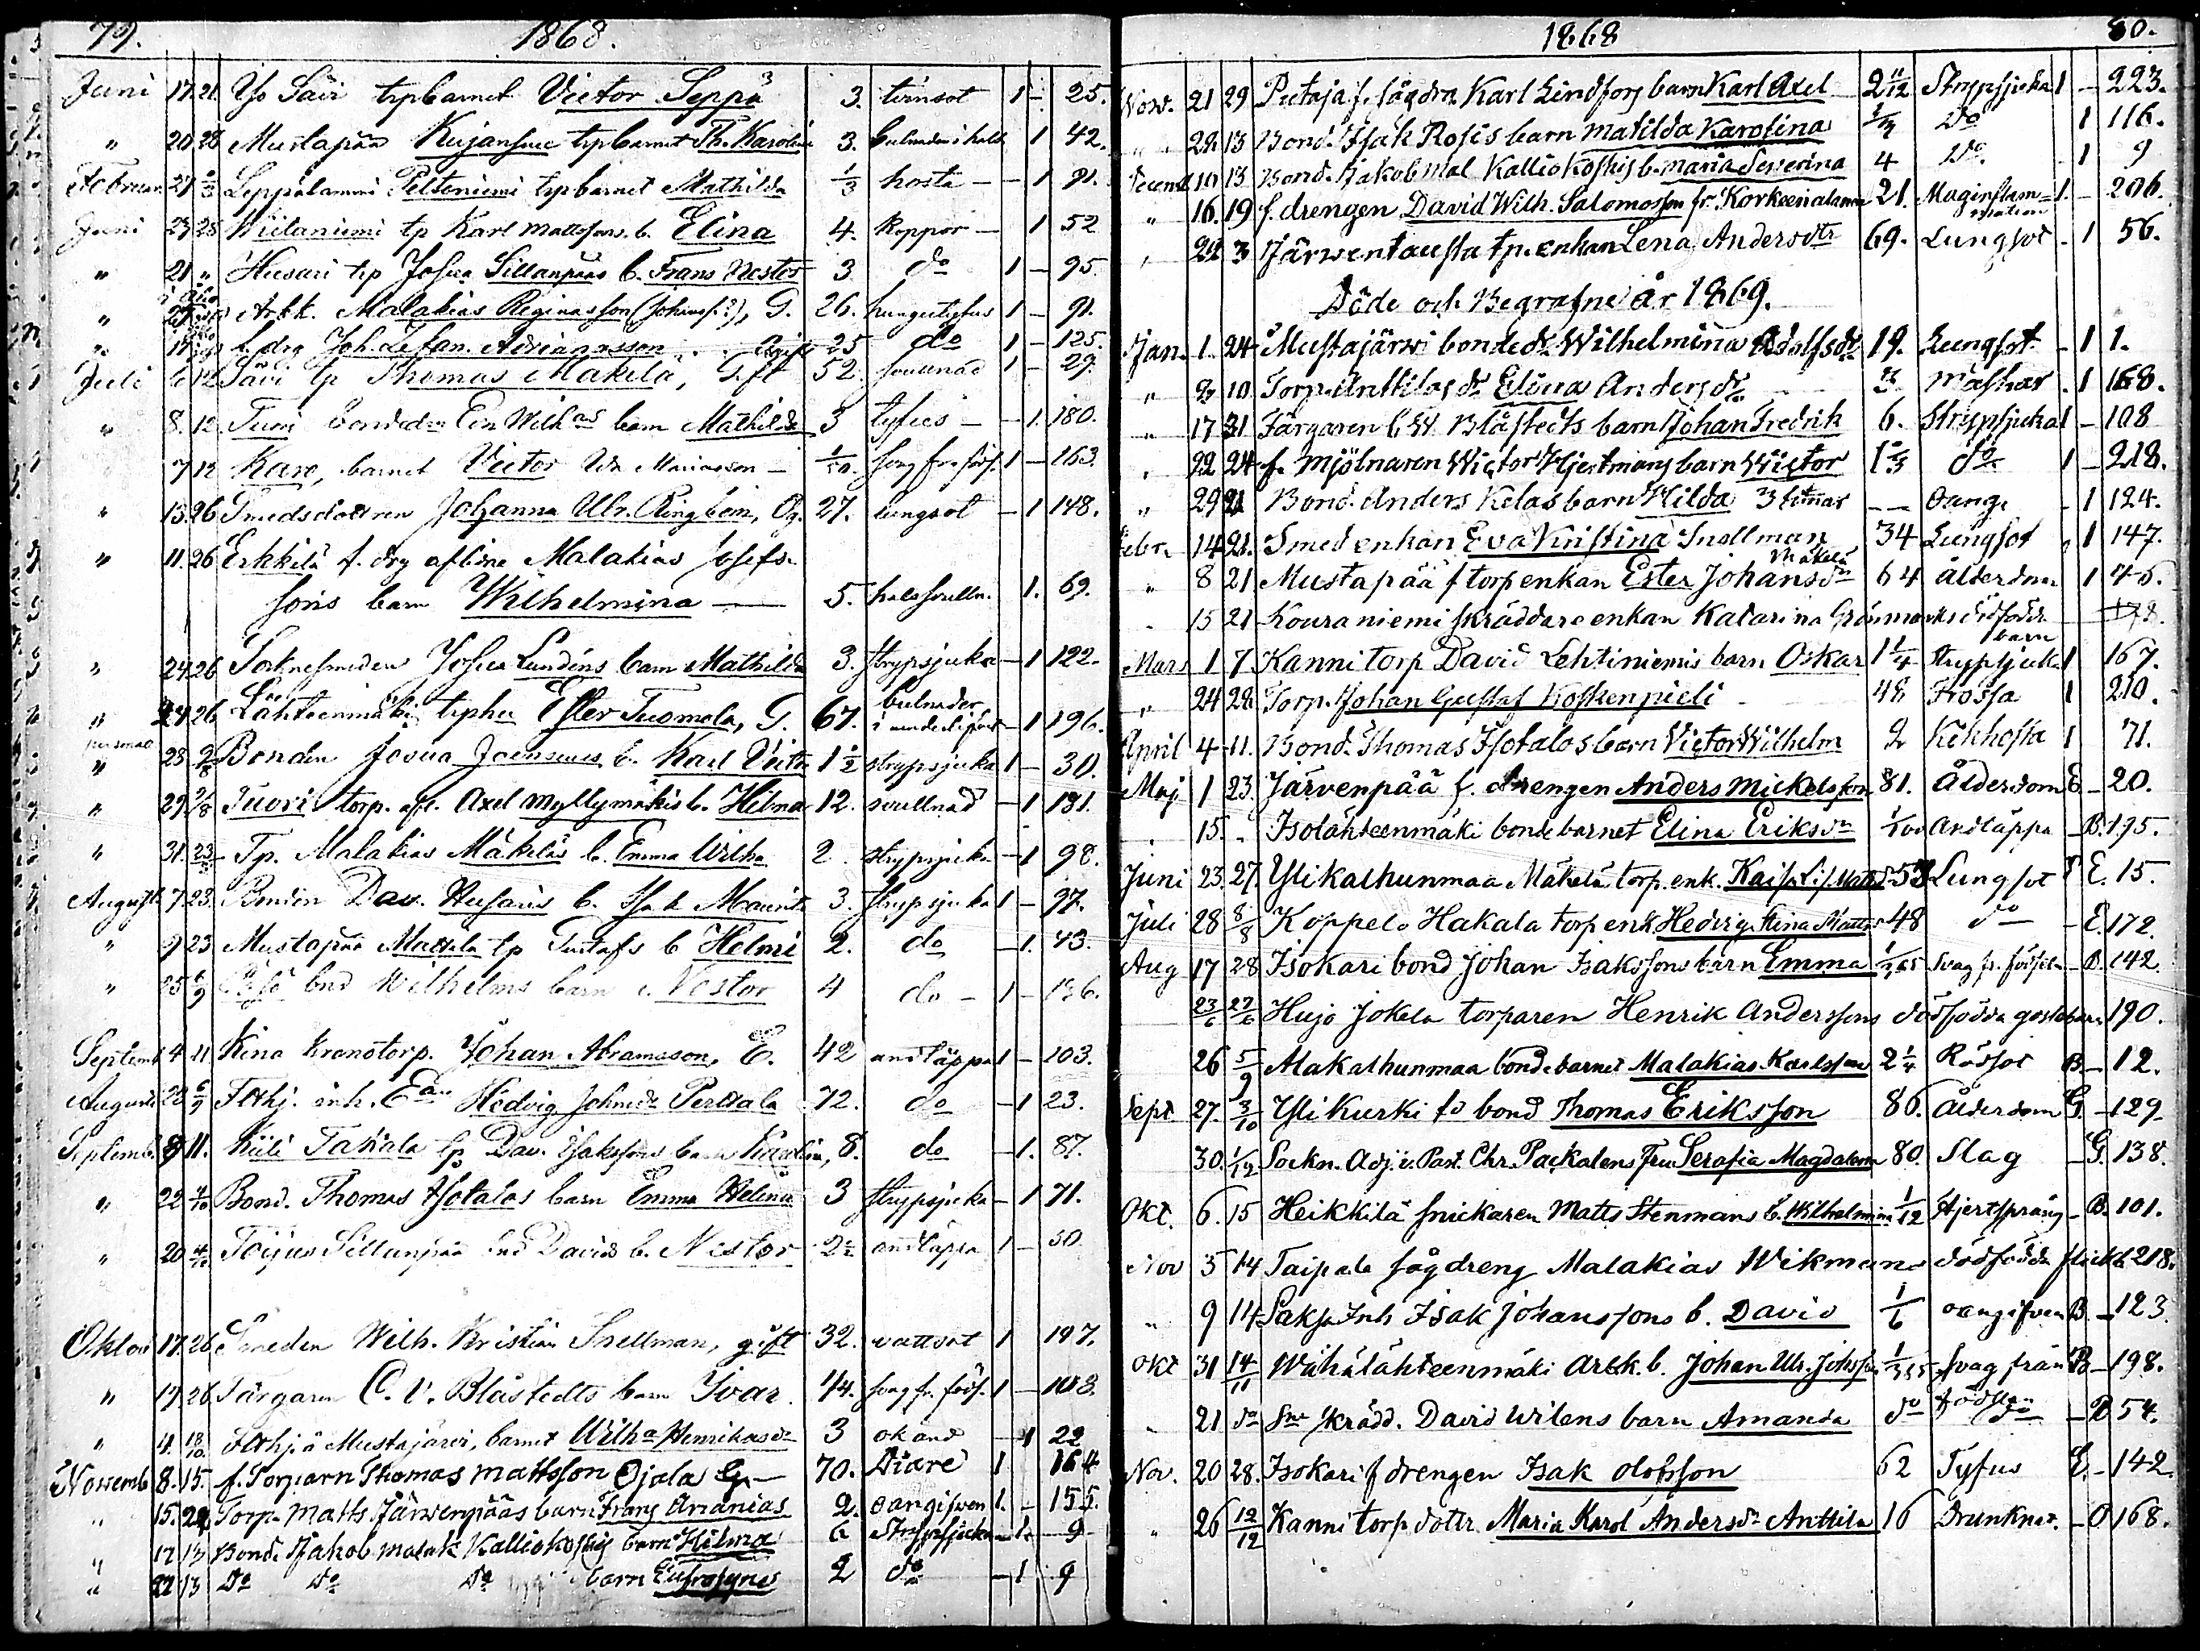 79. 1868.
Juni 17 21 Yso Säis trpbarnet Victor Seppä 3. tvinsot 1 – 25.
" 20 28 Mustapää Kujansuu trpbarnet Th. Karolin 3. bulnaden i hals 1 42.
Februar. 27 Leppälammi Peltoniemi trpbarnet Mathilda 1/3 hosta – – 1 91.
Juni 23 28 Wiitaniemi tp Karl Mattsons b. Elina 4. Koppor – 1 52
" 21 " Husari trp Josua Sillanpääs b. Frans Nestor 3 do 1 – 95.
" Arbk. Malakias Reginasson (Johansf?), G. 26. hungertyfus 1 – 91.
" f. drg Joh. Stefan Adriansson ogift 25 do 1 – 125.
Juli 6 12 Sävi tp Thomas Mäkelä, G.ft 52. svullnad 1 – 29.
" 8. 12 Tuori bonded. Wilh. barn Mathilda 3 tyfus – – 1. 180.
" 7 12 Karo, barnet Victor Mariasson – svag fr. förs. 1 – 163.
" 13 26 Smedsdottren Johanna Ulr. Ringbom, Og. 27. lungsot – 1 148.
" 11. 26 Erkkilä f. drg aflidne Malakias Josefs-
sons barn Wilhelmina — 5. halssvulln. 1. 69.
" 24 26 Socknesmeden Josua Lundéns barn Mathilda 3. strypsjuka – 1 122.
" 24 26 Lähteenmäki trphu Ester Tuomela, G. 67. bulnader i underlifvet – 1 196.
" 28 2/8 Bonden Josua Joensuus b. Karl Victor 1 1/2 strypsjuka 1 – 30.
" 29 2/8 Tuori torp. afl. Axel Myllymäkis b. Hilma 12. svullnad – 1 181.
" 31. 23 Tp. Malakias Mäkeläs b. Emma Wilha 2. strypsjuka – 1 98.
Augusti 7. 23. Bonden Dav. Husaris b. Isak Maurits 3. strypsjuka 1 – 97.
" 9 23 Mustapää Mattala tp Gustafs b Helmi 2. do – 1. 43.
" 25 6/9 bnd Wilhelms barn Nestor 4 do – 1 – 136.
Septemb. 4 11 Kina kronotorp. Johan Abramsson, E. 42 andtäppa 1 – 103.
Augusti 22 6/9 Flthj. inh. E Hedvig Johnsdr Perttala 72. do – 1 23.
Septemb. 9 11. Kiili Takala tp Dav. Isakssons barn Karolin, 8. do – 1. 87.
" 22 4/10 Bond. Thomas Isotalos barn Emma Helena 3 strypsjuka – 1 71.
" 20 4/10 Toijus Sillanpää bnd Davids b. Nestor 2 1/2 andtäppa 1 – 50.
Oktob 17 26 Smeden Wilh. Kristian Snellman, gift 32. vattsot 1 147.
" 19 26 Färgarn C. V. Blåstedts barn Ivar 1/4. svag fr. förs. 1 – 108.
" 4. 18/10 Flthjä Mustajärvi, barnet Wilha Henriksdr 3 okänd – 1 22
Novemb 8. 15. f. Torparn Thomas Mattsson Ojala G. – 70. Diare 1 164
" 15. 22 Torp. Matts Järwenpääs barn Frans Ananias 2. oangifven 1. – 155.
" 17 13 Bond. Jakob Malak Kalliokoskis barn Hilma 6 Strypsjuka – 1. 9
" 22 13 Do Do Do barn Eufrosyne 2 do – 1 9
1868 80.
Nov. 21 29 Peetaja f. sågdrn Karl Lindfors barn Karl Axel 2 11/12 Strypsjuka 1 – 223.
" 22 13 Bond. Isak Rosis barn Matilda Karolina 2/3 Do 1 116.
Decemb 10 13 Bond. Jakob Mal Kalliokoskis b. Maria Severina 4 Do. – 1 9
" 16. 19 f. drengen David Wilh. Salomonsson fr. Korkeenalamm 21. Maginflam=mation 1. – 206.
" 22 3 Järwentausta tp. enkan Lena Andersdtr 69. Lungsot. 1 56.
Döde och Begrafne år 1869.
Jan. 1. 24 Mustajärwi bondedr Wilhelmina Adolfsdr 19. Lungsot. – 1 1.
" 2 10 Torp. Anttilas dr Elina Andersdr Mäshar . 1 168.
" 17 31 Färgaren C W. Blåstedts barn Johan Fredrik 6. Strypsjuka 1 – 108
" 22 24 f. Mjölnaren Wictor Hjertmans barn Wictor 1 2/3 do 1 – 218.
" 29 21 Bond. Anders Kelas barn Hilda 3 timar – – oangi. – 1 124.
Febr. 14 21. Smedenkan Eva Kristina Snellman 34 Lungsot 1 147.
" 8 21 Mustapää f torpenkan Ester Johansdr Mäkelä 64 ålderdom 1 45.
" 15 21 Kouraniemi skräddareenkan Katarina Grönmarks dödfödda barn
Mars 1 7 Kanni torp David Lehtiniemis barn Oskar 1 1/4 strypsjuka 1 167.
" 24 28 Torp. Johan Gustaf Koskenpieli 48 Frossa 1 210.
April 4 11. Bond. Thomas Isotalos barn Victor Wilhelm 2 Kikhosta 1 71.
Maj 1 23. Järvenpää f. drengen Anders Mickelsson 81. Ålderdom E – 20.
" 15. " Isolähteenmäki bondebarnet Elina Eriksdr Andtäppa – B. 195.
Juni 23. 27. Ylikalhunmaa Mäkelä torp. enk. Kaisa Lis. Mattsd 58 Lungsot E. 15.
Juli 28 8/8 Koppelo Hakala torpenk Hedvig Stina Mattsd 48 do – E 172.
Aug 17 28 Isokari bond Johan Isakssons barn Emma svag fr. födseln – B. 142.
23/6 27/6 Hujo Jokela torparen Henrik Anderssons dödfödda gossebarn 190.
26 5/9 Alakalhunmaa bondebarnet Malakias Karlsson 2 1/4 Rödsot B – 12.
Sept 27. 3/10 Ylikurki fd bond Thomas Eriksson 86. Ålderdom G – 129
30. Sockn. Adj. v. Past. Chr. Packalens fru Serafia Magdalena 80. Slag – G. 138.
Okt. 6. 15 Heikkilä snickaren Matts Stenmans b. Wilhelmina 1/12 Hjertsprång – B. 101.
Nov 5 14 Taipale sågdreng Malakias Wikmans dödfödda flickb. 218.
" 9 14 Saksa Inh Isak Johanssons b. David 1/6 oangifven B. – 123.
Okt 31 14/11 Wähälähteenmäki arbk. b. Johan Ulr. Johsson svag från födseln B – 198.
" 21 do Skrädd. David Wilens barn Amanda do do – B 54.
Nov. 20 28. Isokari f drengen Isak Olofsson 62 Tyfus E. – 142.
" 26 12/12 Kanni torp. dottr. Maria Karol Andersdr Anttila 16 Drunknat. – O 168.